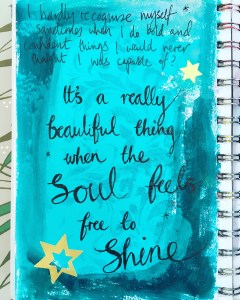 I hardly recognize myself
sometimes when I do bold and
confident things I would never
thought I was capable of?
It's a really
beautiful thing
when the
Soul feels
free to
Shine